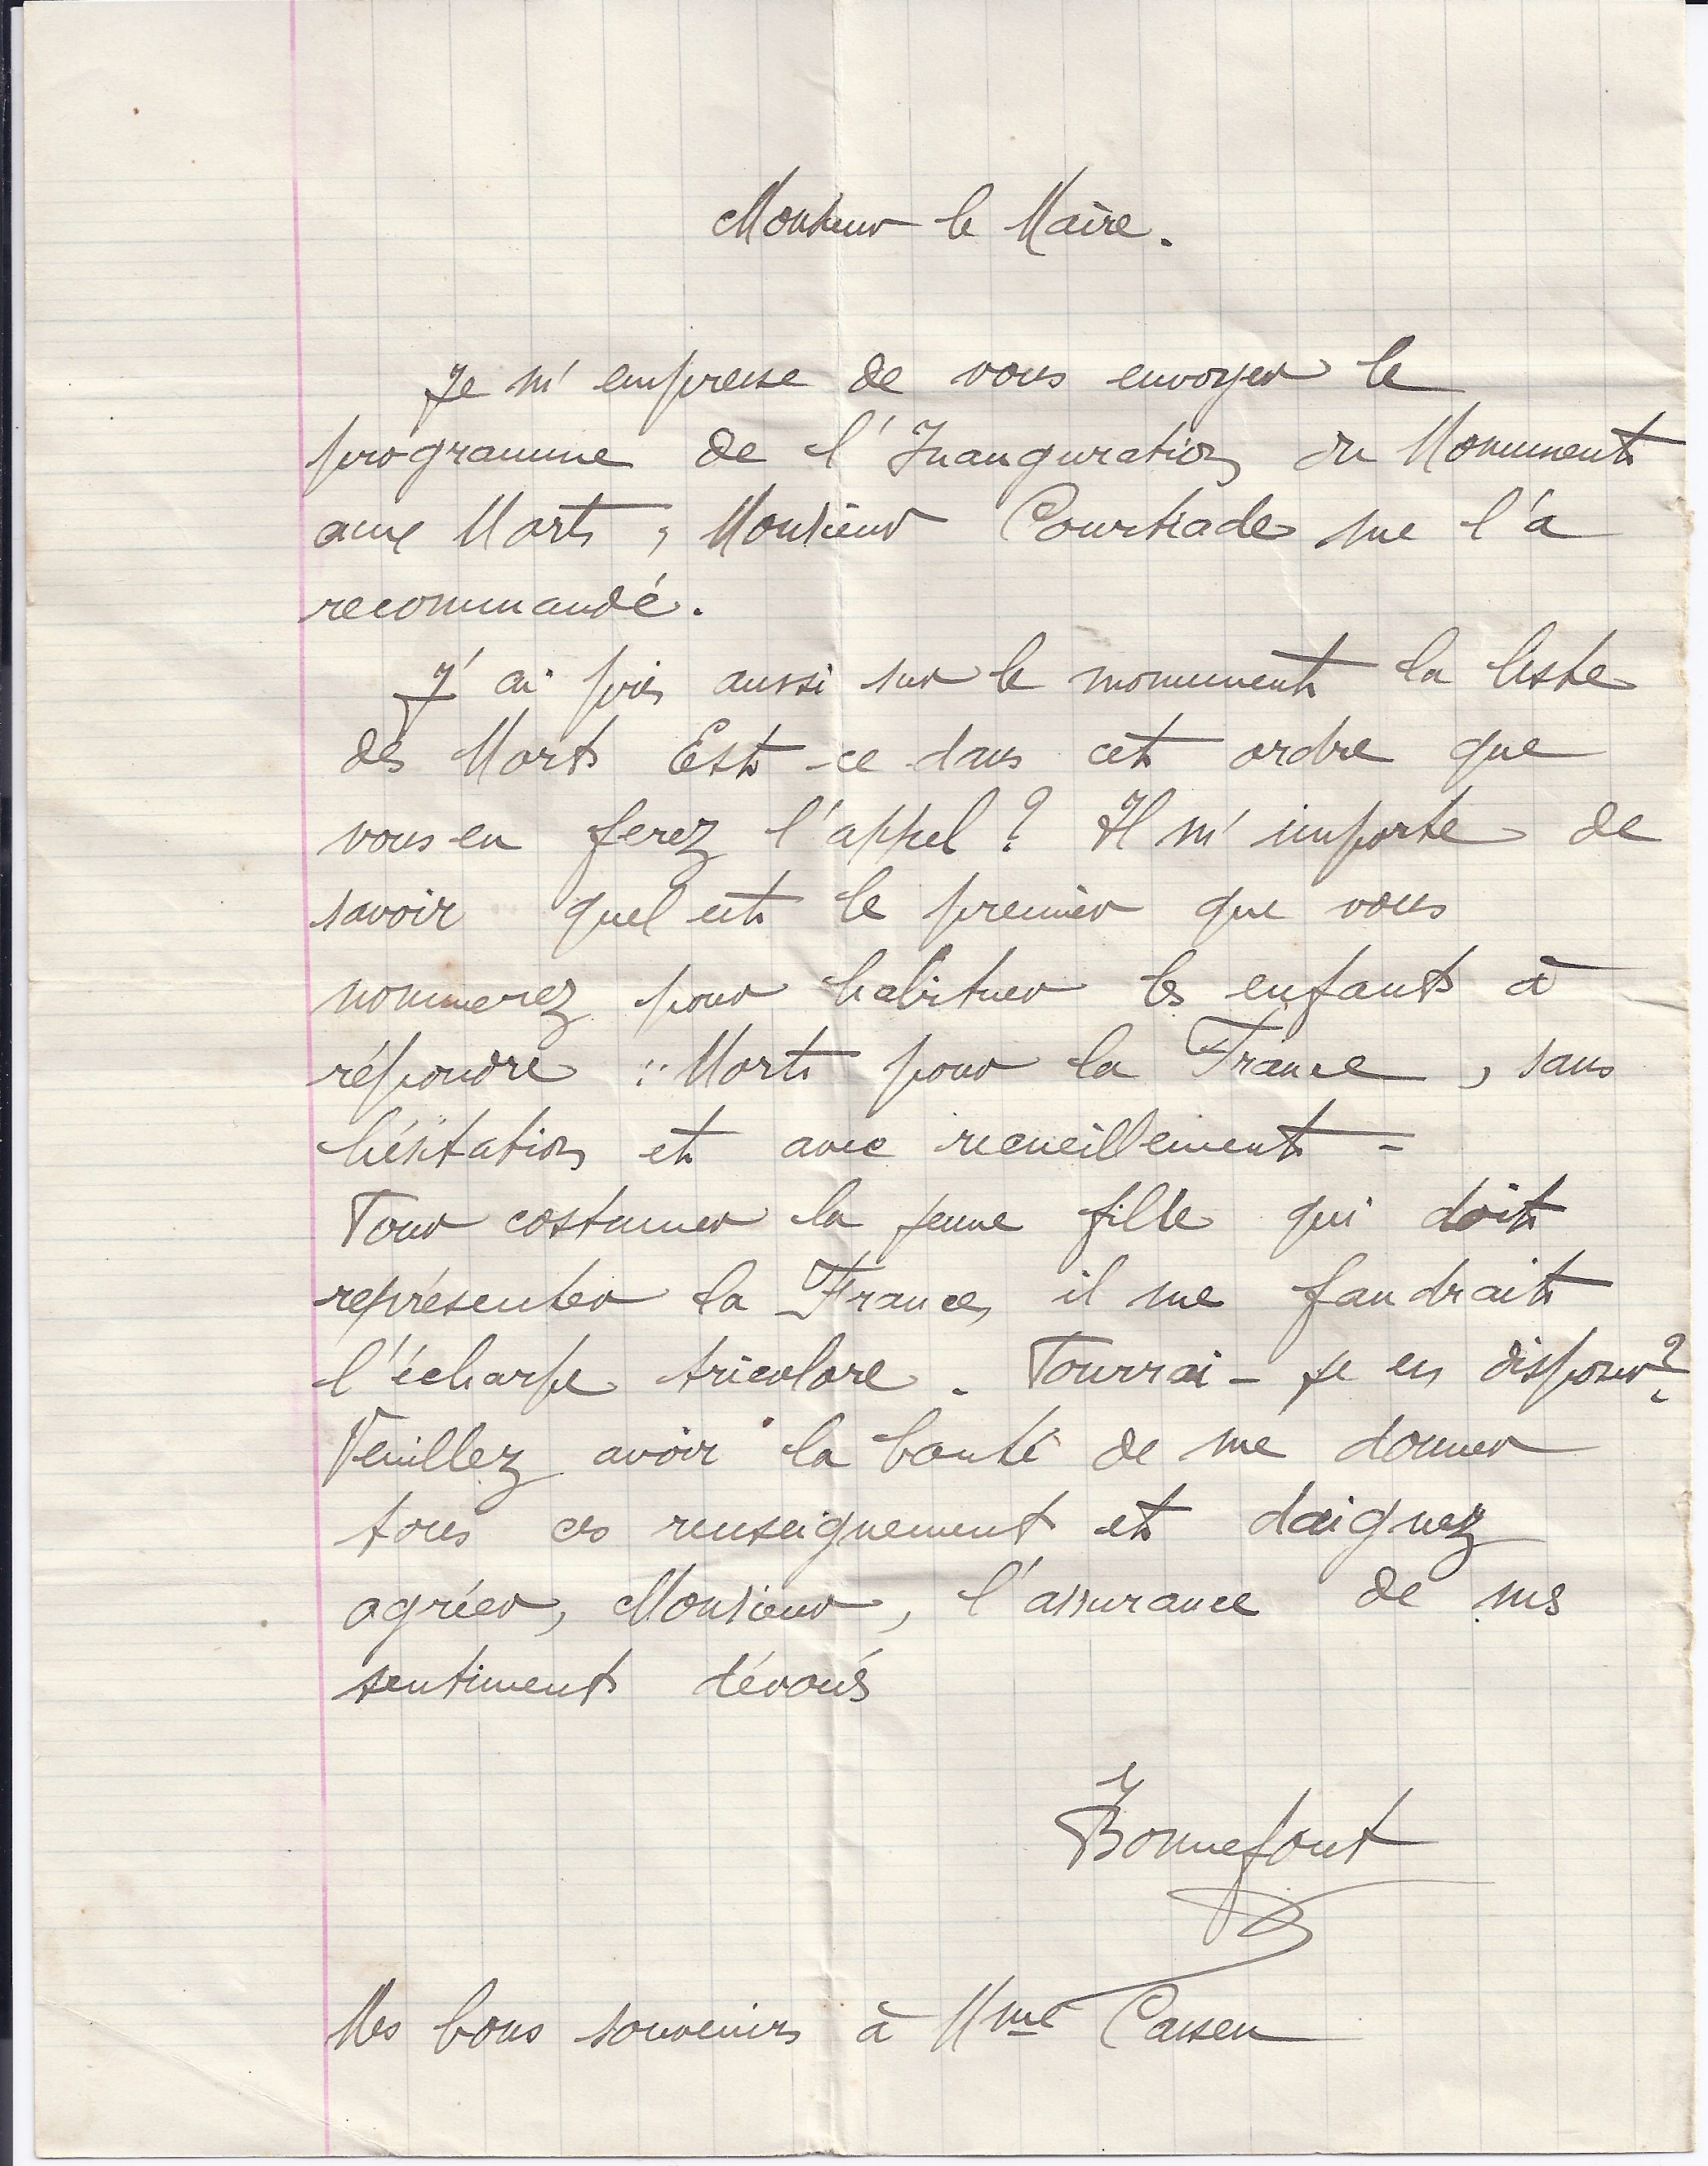 Monsieur le Maire.
Je m'empresse de vous envoyer le
programme de l'Inauguration du Monument
aux Morts, Monsieur Courtiade me l'a
recommandé.
J'ai pris aussi sur le monument la liste
des Morts Est-ce dans cet ordre que
vous en ferez l'appel ? Il m'importe de
savoir quel est le premier que vous
nommerez pour habituer les enfants à
répondre : Mort pour la France, sans
hésitation et avec recueillement -
Pour costumer la jeune fille qui doit
représenter la France, il me faudrait
l'écharpe tricolore. Pourrai-je en disposer ?
Veuillez avoir la bonté de me donner
tous ces renseignement et daignez
agréer, Monsieur, l'assurance de mes
sentiments dévoués
Bonnefont
Mes bons souvenirs à Mme Cassen